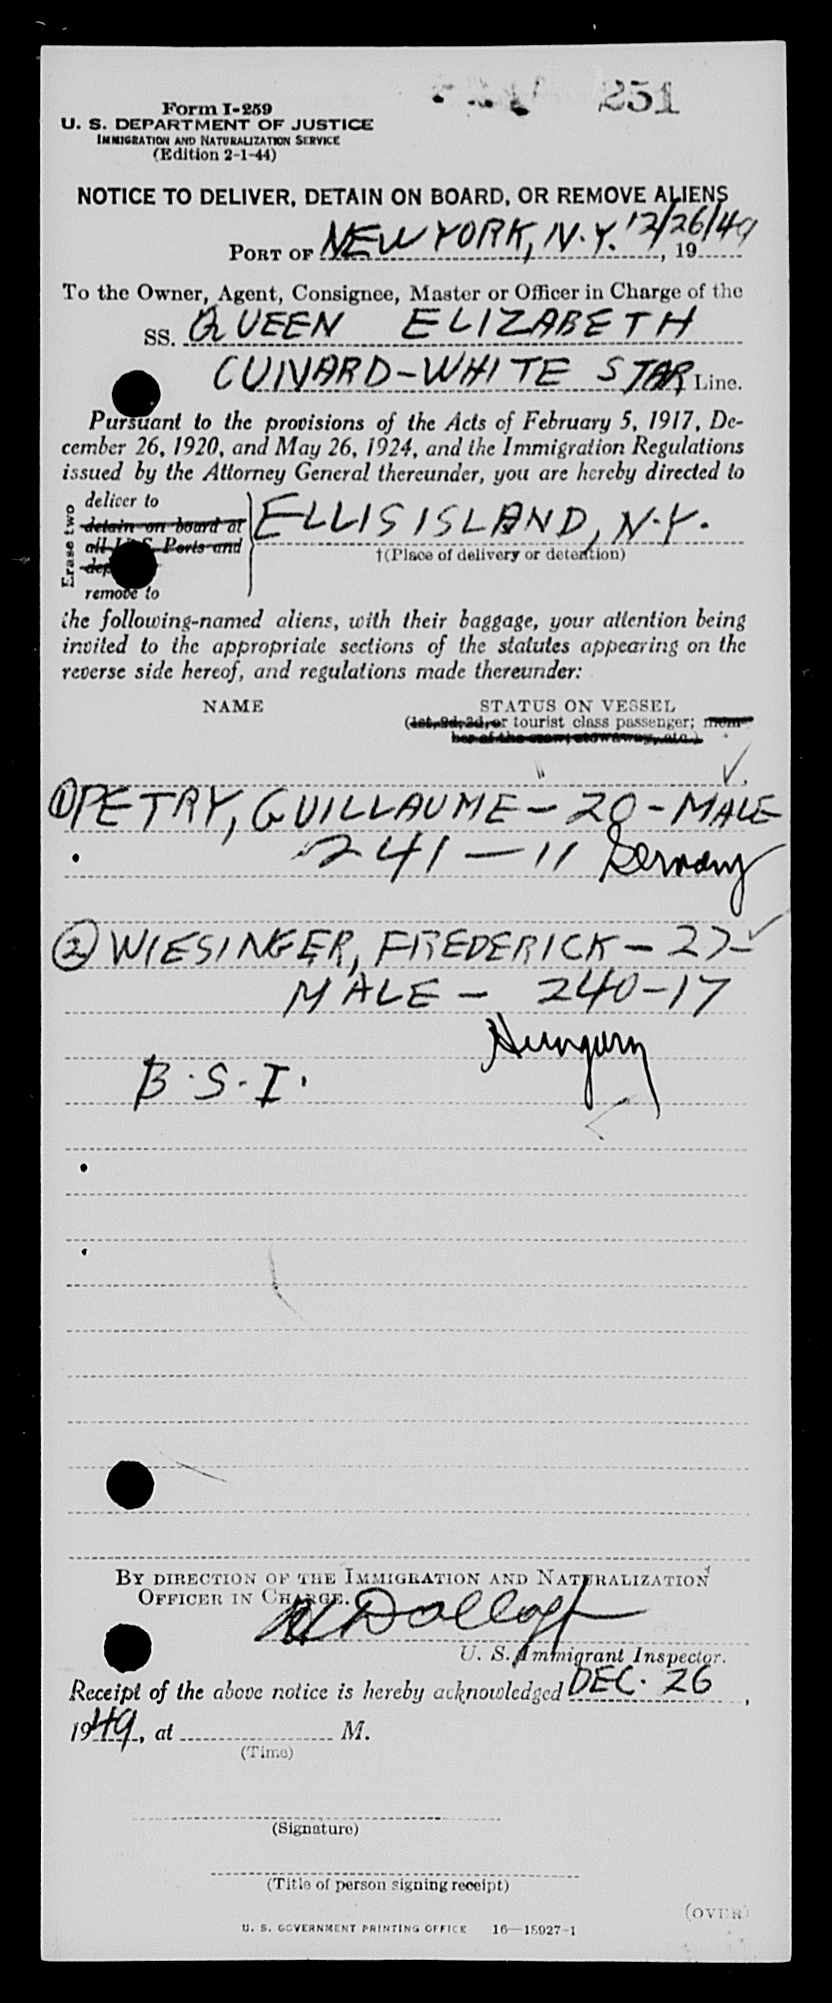 251
Form I-259
U. S. DEPARTMENT OF JUSTICE
IMMIGRATION AND NATURALIZATION SERVICE
(Edition 2-1-44)
NOTICE TO DELIVER, DETAIN ON BOARD, OR REMOVE ALIENS
PORT OF NEW YORK, N.Y. 12/26/49, 19
To the Owner, Agent, Consignee, Master or Officer in Charge of the
SS. QUEEN ELIZABETH
CUNARD-WHITE STAR Line.
Pursuant to the provisions of the Acts of February 5, 1917, De-
cember 26, 1920, and May 26, 1924, and the Immigration Regulations
issued by the Attorney General thereunder, you are hereby directed to
Erase two
deliver to
detain on board at
all U. S. Ports and
remove to
ELLIS ISLAND, N.Y.
†(Place of delivery or detention)
the following-named aliens, with their baggage, your attention being
invited to the appropriate sections of the statutes appearing on the
reverse side hereof, and regulations made thereunder:
NAME STATUS ON VESSEL
(1st, 2d, 3d, or tourist class passenger; mem-
ber of the crew; stowaway, etc.)
① PETRY, GUILLAUME - 20 - MALE
241 - 11 Germany
② WIESINGER, FREDERICK - 27 -
MALE - 240-17
Hungary
B.S.I.
BY DIRECTION OF THE IMMIGRATION AND NATURALIZATION
OFFICER IN CHARGE.
U. S. Immigrant Inspector.
Receipt of the above notice is hereby acknowledged DEC. 26,
1949, at M.
(Time)
(Signature)
(Title of person signing receipt)
(OVER)
U. S. GOVERNMENT PRINTING OFFICE 16—15027-1